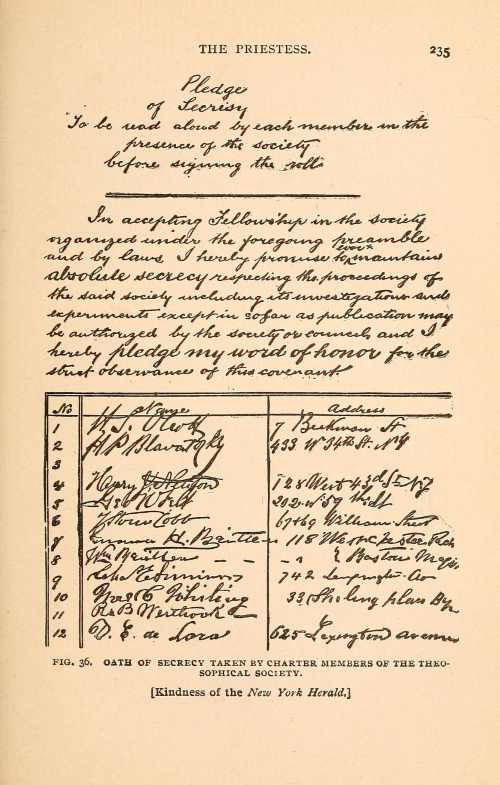 THE PRIESTESS. 235
Pledge
of Secrisy
To be read aloud by each member in the
presence of the society
before signing the rolls
In accepting Fellowship in the society
organized under the foregoing preamble
and by laws, I hereby promise to ever maintain
absolute secrecy respecting the proceedings of
the said society including its investigations and
experiments except in so far as publication may
be authorized by the society or council, and I
hereby pledge my word of honor for the
strict observance of this covenant.
No Name Address
1 H. S. Olcott 7 Beekman St
2 H P Blavatsky 433 W 34th St. NY
3
4 Henry J. Newton 128 West 43d St NY
5 Geo W Felt 202 W 59th St
6 J Storer Cobb 67 & 69 William Street
7 Emma H. Britten 118 Westchester
8 Wm Britten - - - " Boston
9 742 Lexington Av
10 Whiting 33
11 R B Westbrook
12 D. E. de Lara 625 Lexington avenue
FIG. 36. OATH OF SECRECY TAKEN BY CHARTER MEMBERS OF THE THEO-
SOPHICAL SOCIETY.
[Kindness of the New York Herald.]